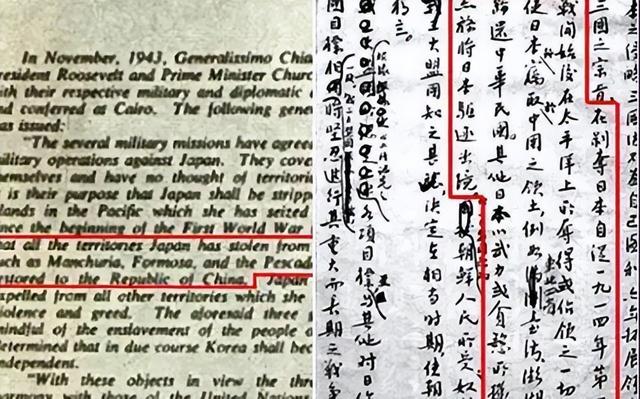 In November, 1943, Generalissimo Chia
resident Roosevelt and Prime Minister Churc
ith their respective military and diplomatic
nd conferred at Cairo. The following gene
as issued:
"The several military missions have agree
ilitary operations against Japan. They cove
emselves and have no thought of territori
is their purpose that Japan shall be stripp
lands in the Pacific which she has seized
nce the beginning of the First World War
hat all the territories Japan has stolen from
ch as Manchuria, Formosa, and the Pescad
estored to the Republic of China. Japan
xpelled from all other territories which she
iolence and greed. The aforesaid three
indful of the enslavement of the people
etermined that in due course Korea shall bec
ndependent.
"With these objects in view the thr
armony with those of the United Nations
三國決不為自己圖利
三國之宗旨在剝奪日本自從一九一四年第一
戰開始後在太平洋上所奪得或佔領之一切
使日本竊取中國之領土例如臺灣澎湖
還中華民國其他日本以武力或貪慾所
務將日本驅逐出境朝鮮人民所受奴
大盟國知之甚決定在相當時期使朝
各項目標與其他對日作
國目標相同時堅忍進行其重大而長期之戰爭